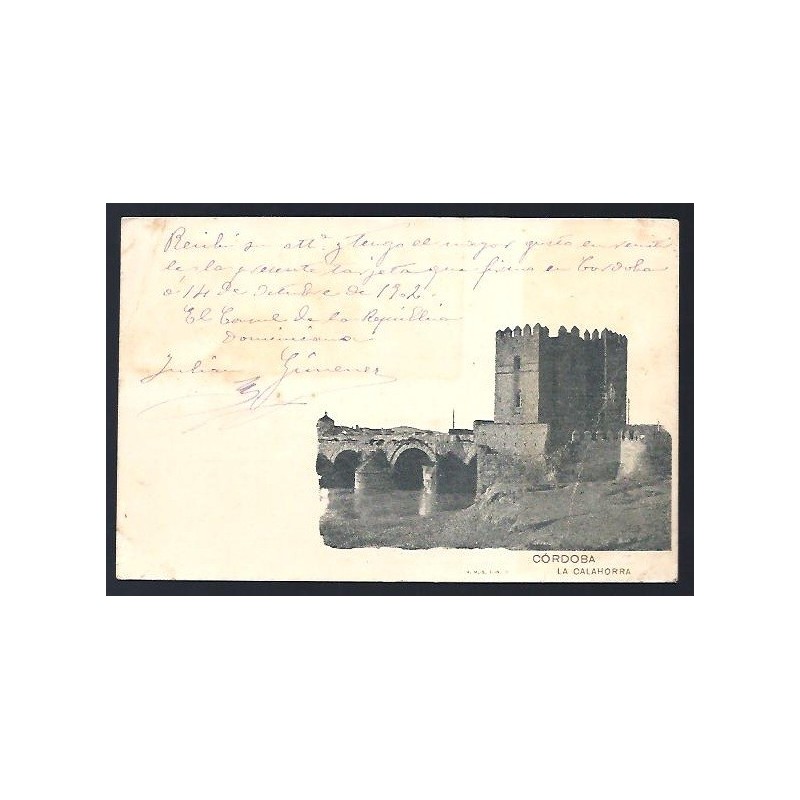 Recibí su attª. y tengo el mayor gusto en remitir
le la presente tarjeta que firmo en Cordoba
a 14 de Octubre de 1902.
El Consul de la República
Dominicana
Julián Gimenez
CÓRDOBA
LA CALAHORRA